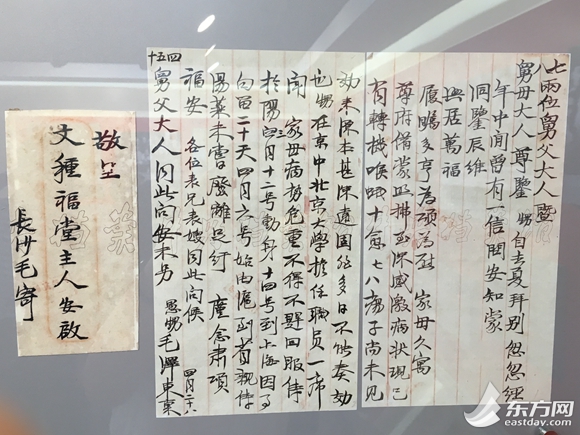 七
八 兩位舅父大人暨
舅母大人尊鑒 甥自去夏拜別 忽忽經
年中間曾有一信問安知蒙
洞鑒辰維
興居萬福
履瞩多亨為頌為慰 家母久寓
尊府備蒙照拂至深感激病狀現已
有轉機喉蛾十愈七八瘍子尚未見
效來源本甚深遠固非多日不能奏效
也甥在京中北京大學擔任職員一席
聞 家母病勢危重不得不趕回服侍
於陽 月十二號動身十四號到上海因事
勾留二十天四月六號始由滬到省親侍
湯藥未嘗廢離足紓 廑念肅頌
福安 各位表兄表嫂同此問候
四五
舅父大人同此問安未另 愚甥毛澤東稟 四月二十八
敬呈
文種福堂主人安啟
長沙毛寄
东方网
eastday.com